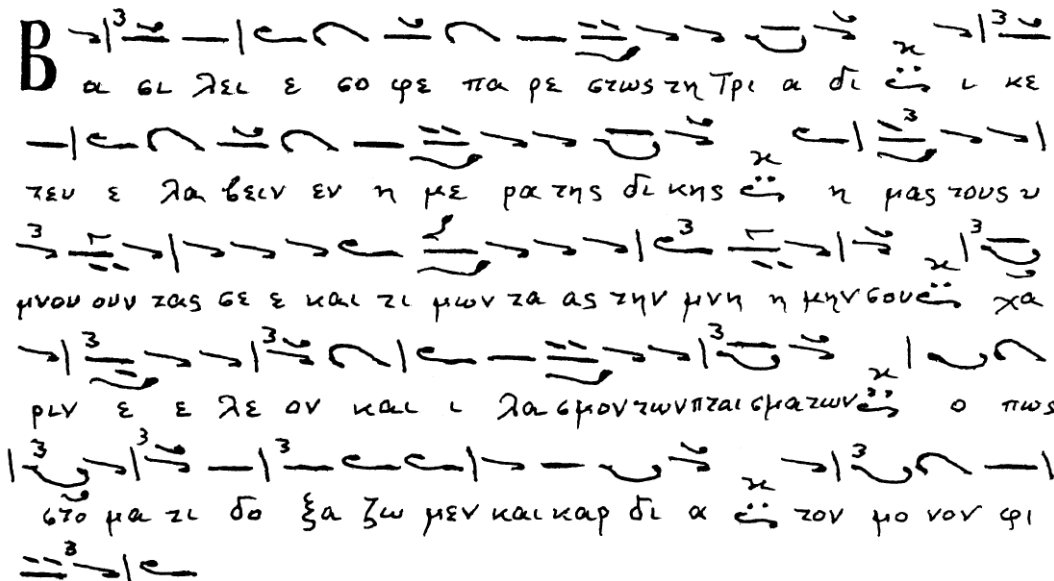 Β α σι λει ε σο φε πα ρε στως τη Τρι α δι ι κε
τευ ε λα βειν εν η με ρα της δι κης η μας τους υ
μνου ουν τας σε ε και τι μων τα ας την μνη η μην σου χα
ριν ε ε λε ον και ι λα σμον των πται σμα των ο πως
στο μα τι δο ξα ζω μεν και καρ δι α τον μο νον φι